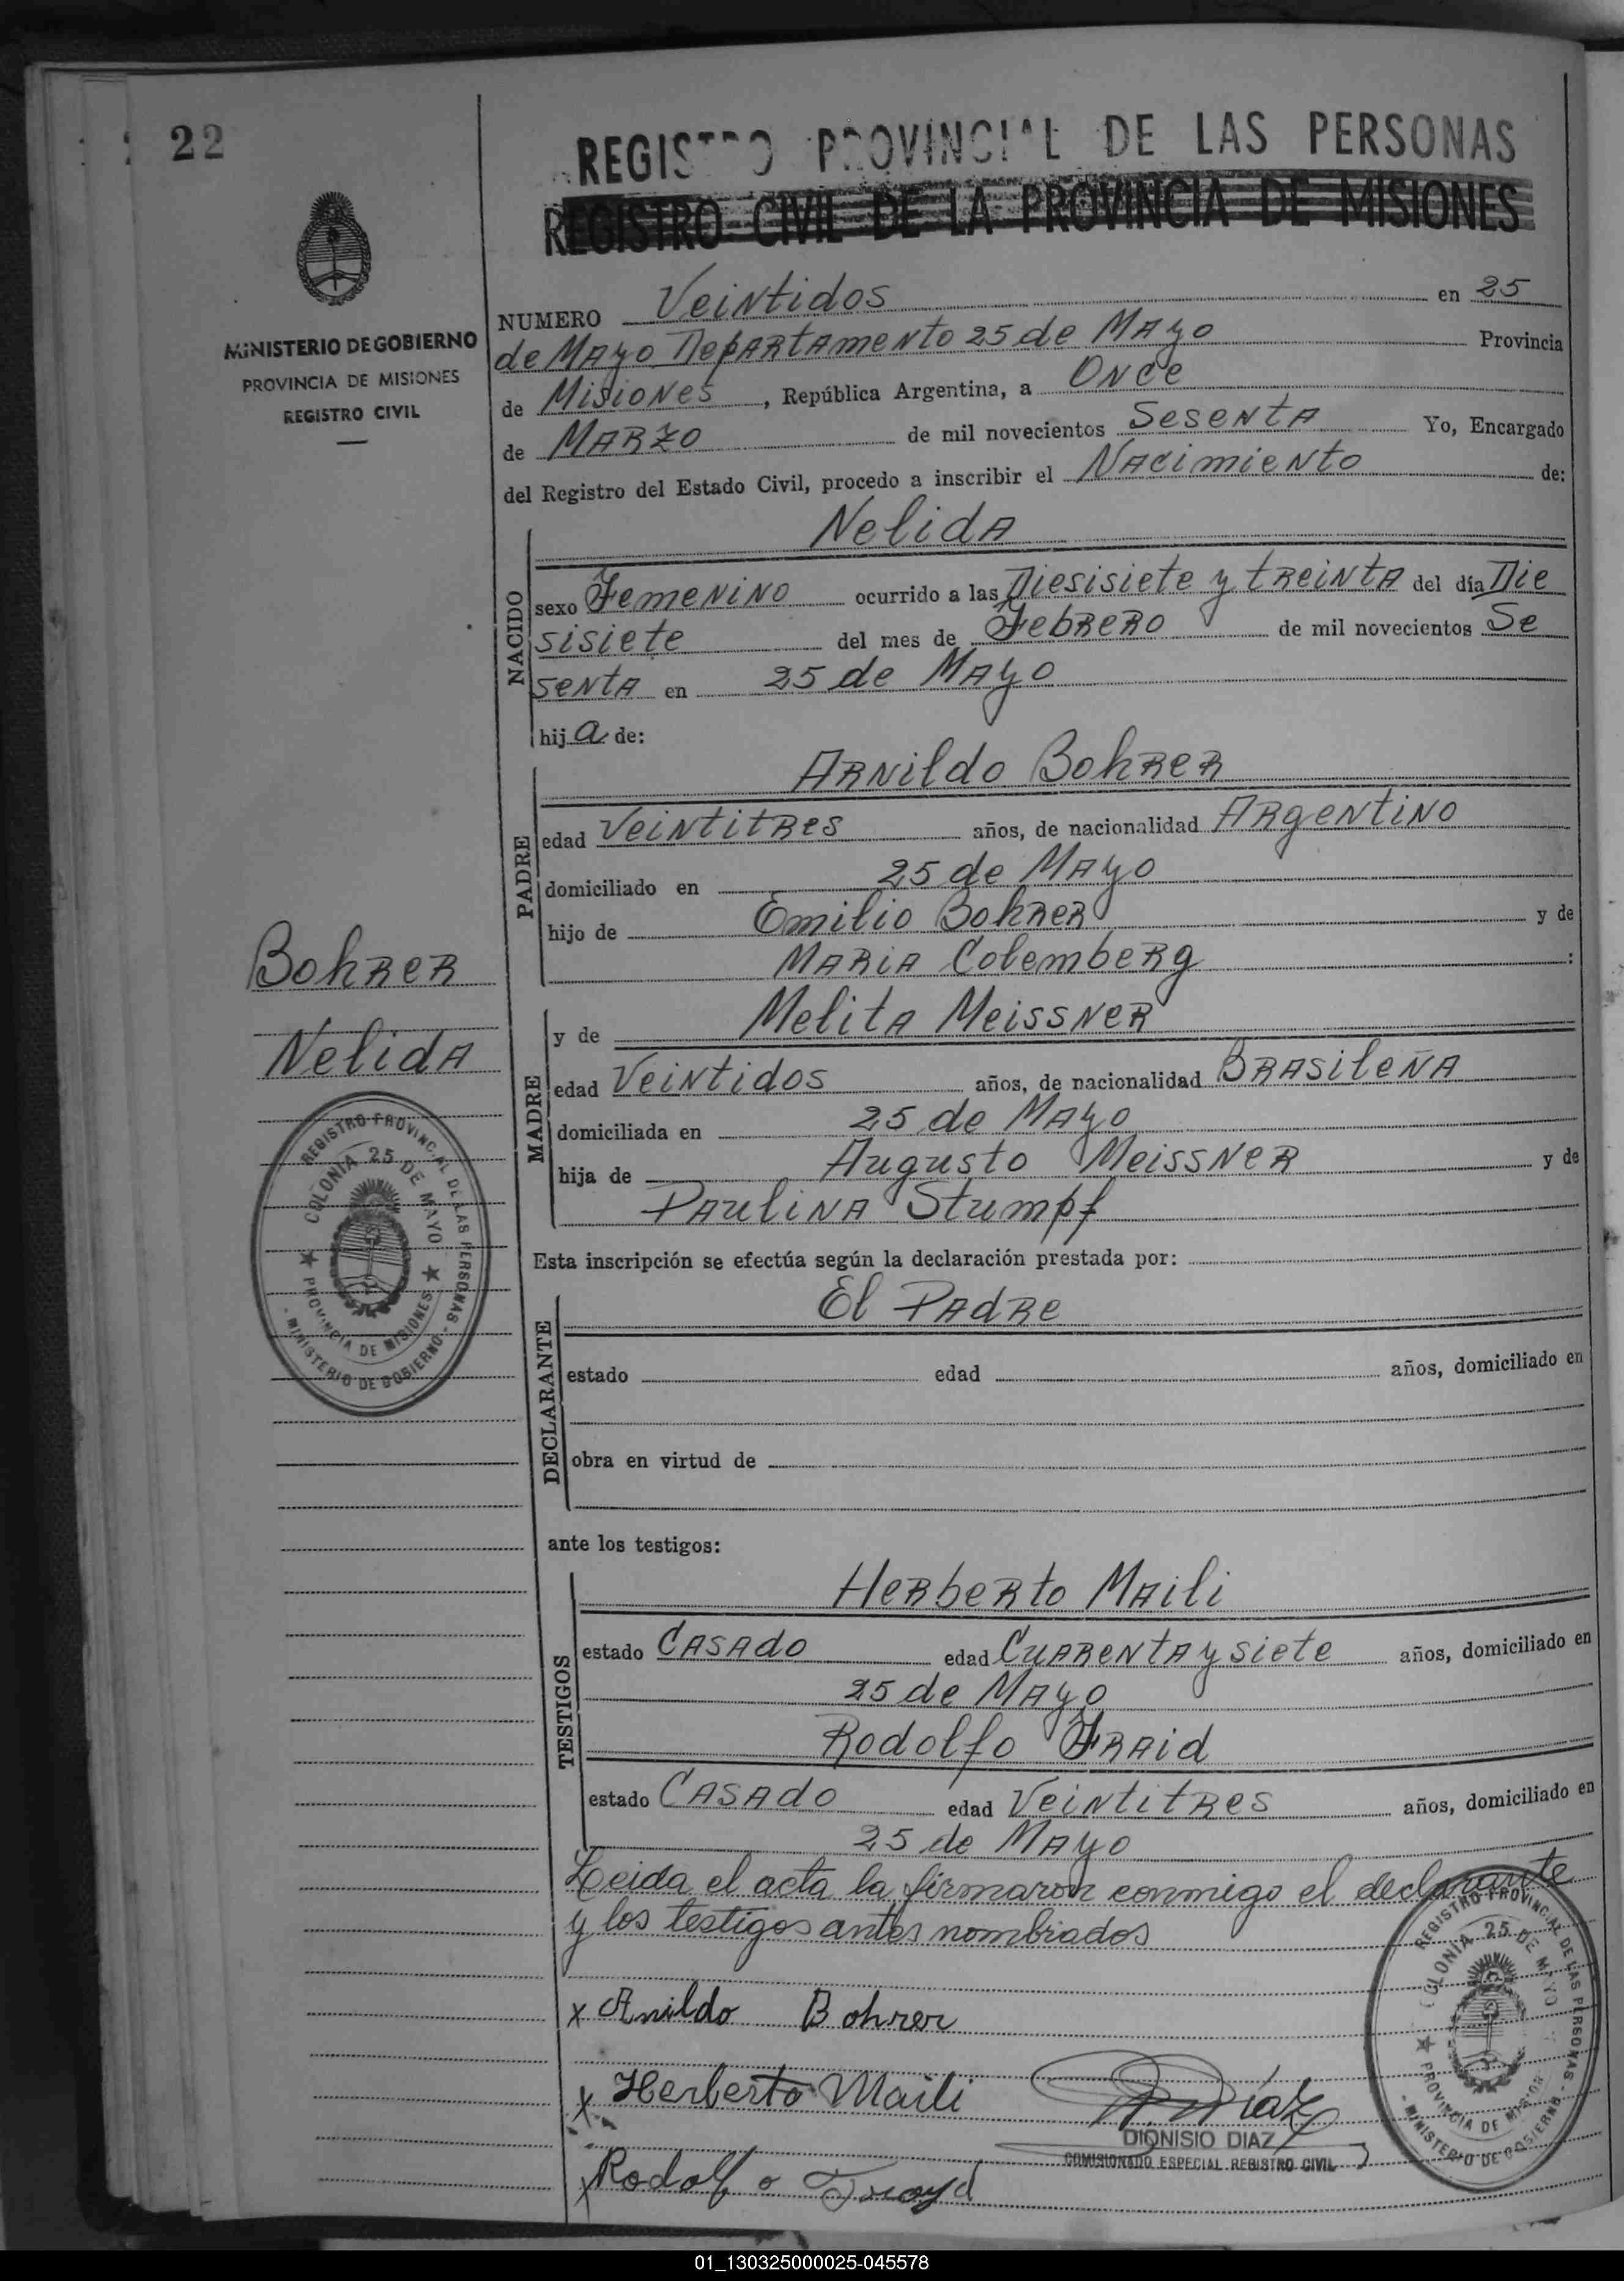 22
REGISTRO PROVINCIAL DE LAS PERSONAS
REGISTRO CIVIL DE LA PROVINCIA DE MISIONES
MINISTERIO DE GOBIERNO
PROVINCIA DE MISIONES
REGISTRO CIVIL
NUMERO Veintidos en 25
de Mayo Departamento 25 de Mayo Provincia
de Misiones, República Argentina, a Once
de Marzo de mil novecientos Sesenta Yo, Encargado
del Registro del Estado Civil, procedo a inscribir el Nacimiento de:
NACIDO
Nelida
sexo Femenino ocurrido a las Diesisiete y treinta del día Die
sisiete del mes de Febrero de mil novecientos Se
senta en 25 de Mayo
hija de:
PADRE
Arnildo Bohrer
edad Veintitres años, de nacionalidad Argentino
domiciliado en 25 de Mayo
hijo de Emilio Bohrer y de
Maria Colemberg :
Bohrer
Nelida
MADRE
y de Melita Meissner
edad Veintidos años, de nacionalidad Brasileña
domiciliada en 25 de Mayo
hija de Augusto Meissner y de
Paulina Stumpf
REGISTRO PROVINCIAL DE LAS PERSONAS - MINISTERIO DE GOBIERNO -
COLONIA 25 DE MAYO ★ PROVINCIA DE MISIONES ★
Esta inscripción se efectúa según la declaración prestada por:
DECLARANTE
El Padre
estado edad años, domiciliado en
obra en virtud de
ante los testigos:
TESTIGOS
Herberto Maili
estado Casado edad Cuarenta y siete años, domiciliado en
25 de Mayo
Rodolfo Fraid
estado Casado edad Veintitres años, domiciliado en
25 de Mayo
Leida el acta la firmaron conmigo el declarante
y los testigos antes nombrados
x Anildo Bohrer
x Herberto Maili
A. Díaz
DIONISIO DIAZ
COMISIONADO ESPECIAL REGISTRO CIVIL
x Rodolfo
REGISTRO PROVINCIAL DE LAS PERSONAS - MINISTERIO DE GOBIERNO -
COLONIA 25 DE MAYO ★ PROVINCIA DE MISION
01_130325000025-045578